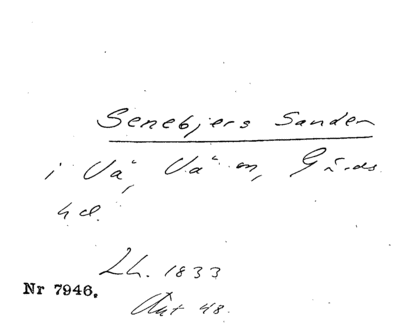 Senebjers Sanden
i Vä, Vä sn, Gärds
hd.
Lh. 1833
Nr 7946.
Akt 48.